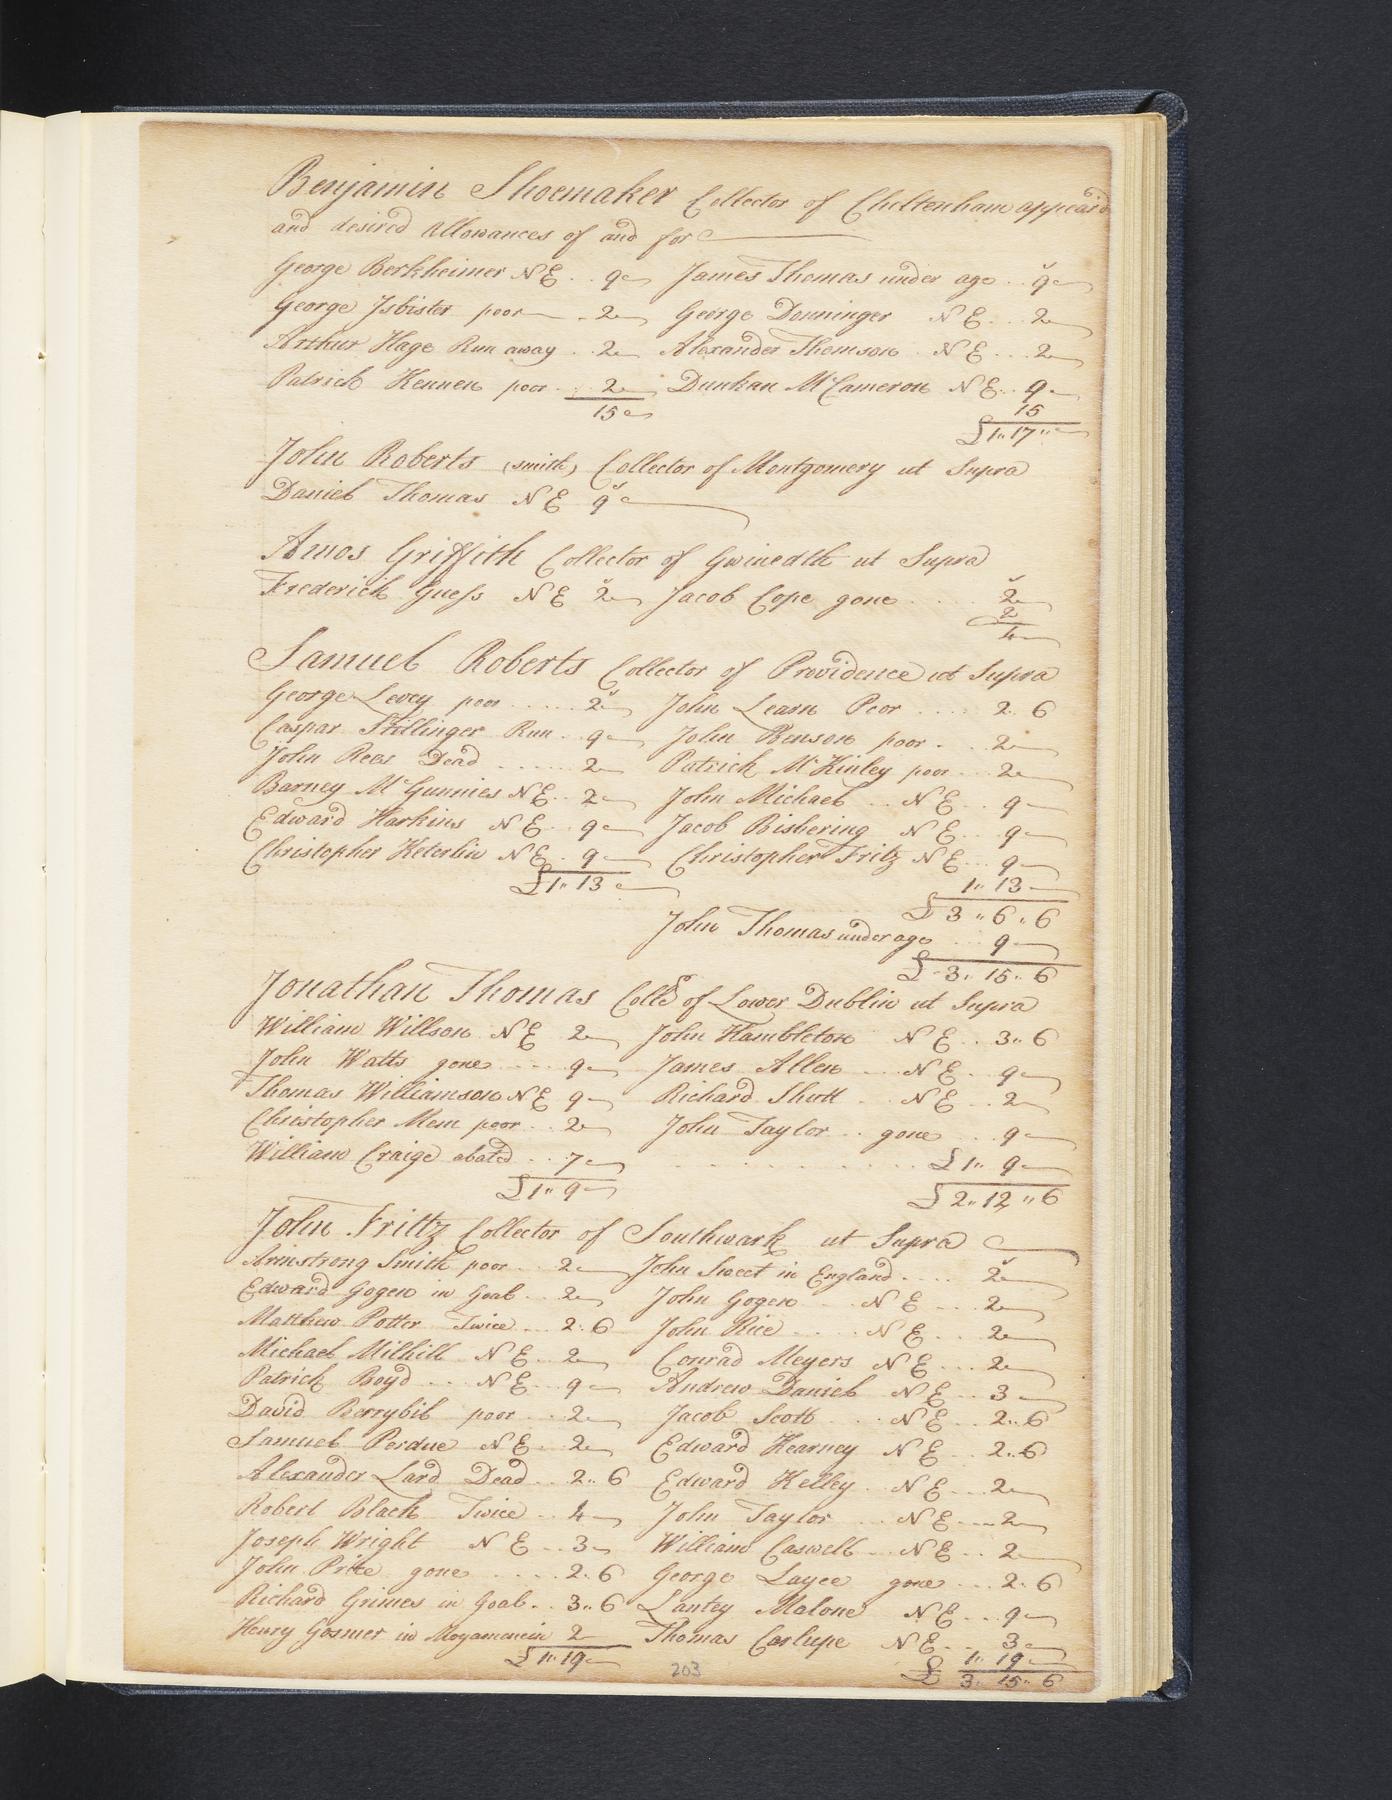 Benjamin Shoemaker Collector of Cheltenham appeard
and desired Allowances of and for
George Berkheimer N E .. 9 James Thomas under age .. 9
George Isbister poor .. 2 George Donninger N E ... 2
Arthur Hage Run away .. 2 Alexander Thomson . N E ... 2
Patrick Kennen poor ... 2 Dunkan McCameron N E .. 9
15 15
£1" 17"
John Roberts (smith) Collector of Montgomery ut Supra
Daniel Thomas N E 9s
Amos Griffith Collector of Gwinedth ut Supra
Frederick Guess N E 2s Jacob Cope gone .... 2s
2
4
Samuel Roberts Collector of Providence ut Supra
George Levey poor ..... 2s John Learn Poor .... 2. 6
Caspar Stillinger Run .. 9 John Benson poor . .. 2
John Rees Dead ...... 2 Patrick McKinley poor ... 2
Barney McGunnies N E .. 2 John Michael .. N E .. 9
Edward Harkins N E .. 9 Jacob Bishering N E ... 9
Christopher Keterlin N E . 9 Christopher Fritz N E ... 9
£1" 13 1" 13
£ 3 " 6 " 6
John Thomas under age ... 9
£ 3" 15" 6
Jonathan Thomas Collr of Lower Dublin ut Supra
William Willson N E 2 John Hambleton N E .. 3" 6
John Watts gone .... 9 James Allen ... N E . 9
Thomas Williamson N E 9 Richard Shott .. N E .. 2
Christopher Mem poor .. 2 John Taylor .. gone ... 9
William Craige abated ... 7 £1" 9
£1" 9 £2" 12 " 6
John Frittz Collector of Southwark ut Supra
Armstrong Smith poor ... 2 John Sweet in England .... 2s
Edward Gogen in Goal .. 2 John Gogen ... N E ... 2
Matthew Potter Twice ... 2. 6 John Rice .... N E ... 2
Michael Milhill N E .. 2 Conrad Meyers N E ... 2
Patrick Boyd ... N E .. 9 Andrew Daniel N E ... 3
David Berrybil poor ... 2 Jacob Scott ... N E ... 2.. 6
Samuel Perdue N E .. 2 Edward Kearney N E .. 2.. 6
Alexander Lard Dead .. 2.. 6 Edward Kelley .. N E ... 2
Robert Black Twice .. 4 John Taylor ... N E ... 2
Joseph Wright N E .. 3 William Caswell .. N E .. 2
John Prite gone ..... 2. 6 George Layee gone ... 2. 6
Richard Grimes in Goal .. 3.. 6 Lantey Malone N E ... 9
Henry Gosner in Moyamencin 2 Thomas Carlupe N E ... 3
£1" 19 1" 19
£ 3" 15" 6
203